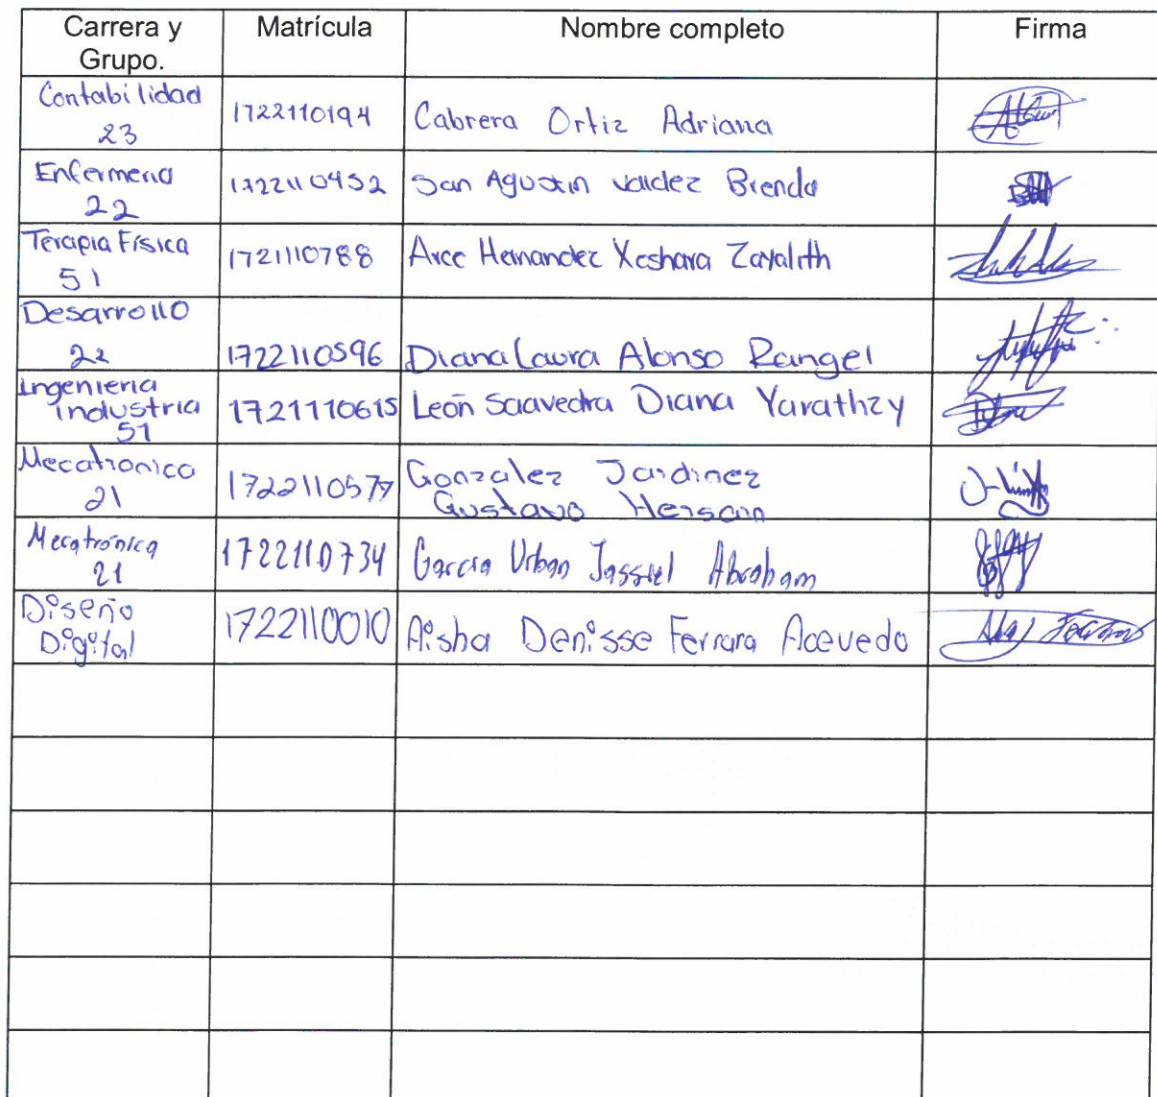 Carrera y Grupo. Matrícula Nombre completo Firma
Contabilidad 23 1722110194 Cabrera Ortiz Adriana
Enfermeria 22 1722110452 San Agustin Valdez Brenda
Terapia Física 51 1721110788 Arce Hernandez Xeshara Zayalith
Desarrollo 22 1722110596 Diana Laura Alonso Rangel
Ingenieria industria 51 1721110615 León Saavedra Diana Yarathzy
Mecatronica 21 1722110577 Gonzalez Jardinez Gustavo Hersain
Mecatrónica 21 1722110734 Garcia Urban Jassiel Abraham
Diseño Digital 1722110010 Aisha Denisse Ferrara Acevedo